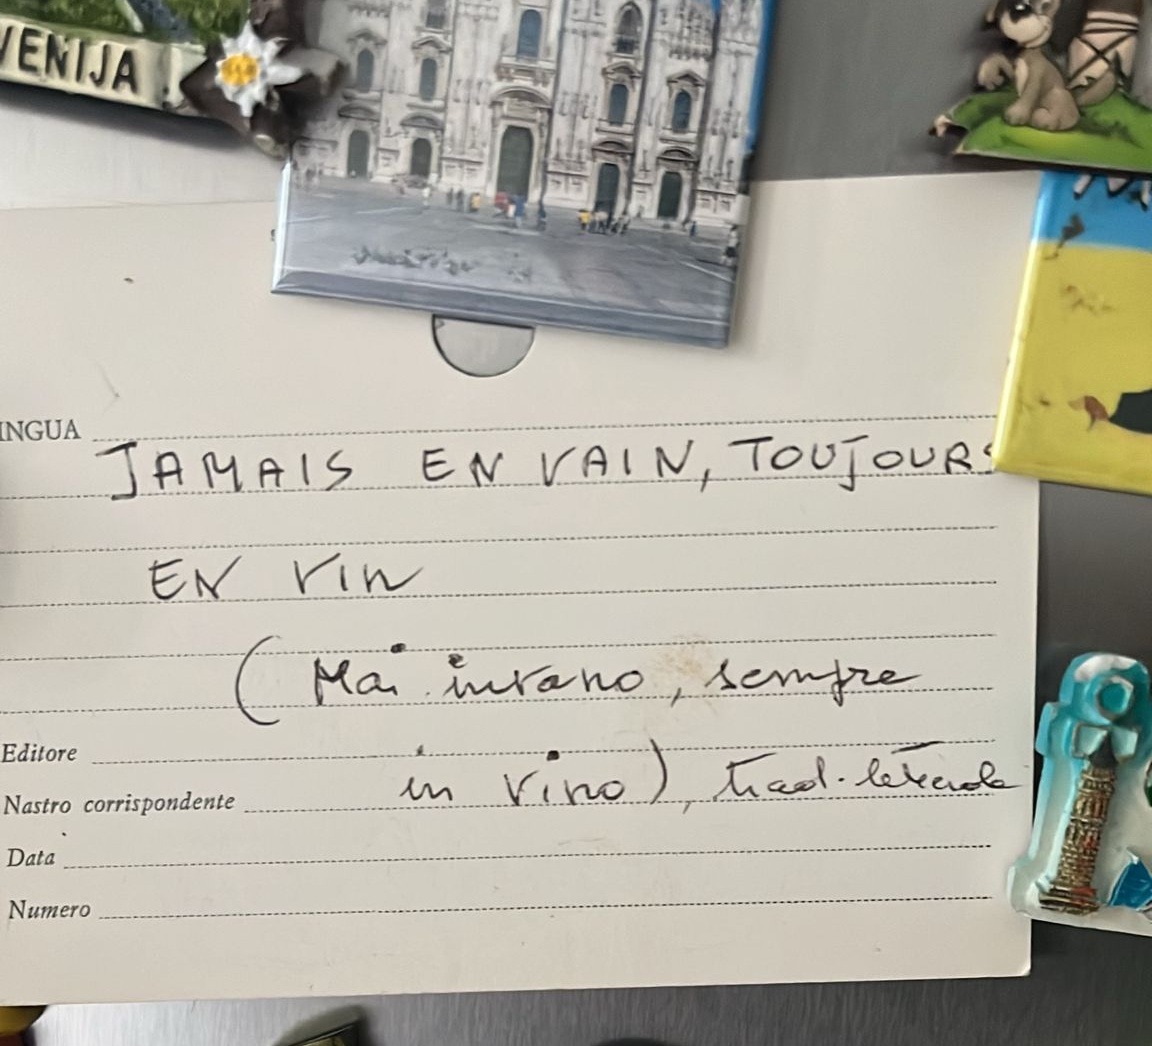 VENIJA
INGUA
JAMAIS EN VAIN, TOUJOURS
EN VIN
(Mai invano, sempre
Editore
in vino), trad. letterale
Nastro corrispondente
Data
Numero